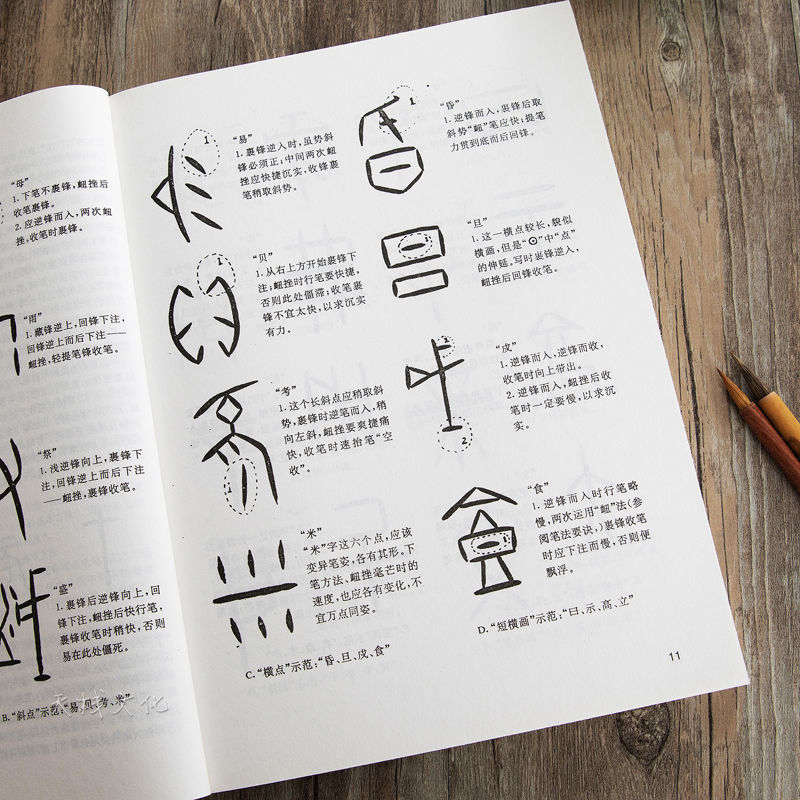 “母”
1. 下笔不裹锋，衄挫后
收笔裹锋。
2. 应逆锋而入，两次衄
挫，收笔时裹锋。
“雨”
1. 藏锋逆上，回锋下注，
回锋逆上而后下注——
衄挫，轻提笔锋收笔。
“祭”
1. 浅逆锋向上，裹锋下
注，回锋逆上而后下注
——衄挫，裹锋收笔。
“盛”
1. 裹锋后逆锋向上，回
锋下注，衄挫后快行笔，
裹锋收笔时稍快，否则
易在此处僵死。
B. “斜点”示范：“易、贝、考、米”
天栈文化
“易”
1. 裹锋逆入时，虽势斜
锋必须正；中间两次衄
挫应快捷沉实，收锋裹
笔稍取斜势。
1
“贝”
1. 从右上方开始裹锋下
注；衄挫时行笔要快捷，
否则此处僵滞；收笔裹
锋不宜太快，以求沉实
有力。
1
“考”
1. 这个长斜点应稍取斜
势，裹锋时逆笔而入，稍
向左斜，衄挫要爽捷痛
快，收笔时速抬笔“空
收”。
1
“米”
“米”字这六个点，应该
变异笔姿，各有其形。下
笔方法、衄挫毫芒时的
速度，也应各有变化，不
宜万点同姿。
C. “横点”示范：“昏、旦、戍、食”
“昏”
1. 逆锋而入，裹锋后取
斜势“衄”笔应快；提笔
力贯到底而后回锋。
1
“旦”
1. 这一横点较长，貌似
横画，但是“⊙”中“点”
的伸延。写时裹锋逆入，
衄挫后回锋收笔。
“戍”
1. 逆锋而入，逆锋而收，
收笔时向上带出。
2. 逆锋而入，衄挫后收
笔时一定要慢，以求沉
实。
1
2
“食”
1. 逆锋而入时行笔略
慢，两次运用“衄”法（参
阅笔法要诀，）裹锋收笔
时应下注而慢，否则便
飘浮。
D. “短横画”示范：“曰、示、高、立”
11